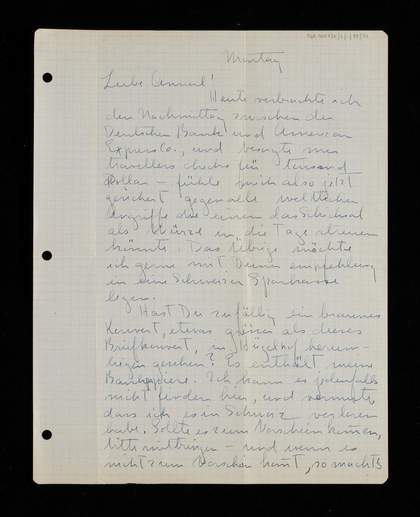 Montag
Liebe Annual!
Heute verbrachte ich
den Nachmittag zwischen der
Deutschen Bank und American
Express Co., und besorgte mir
travellers checks für tausend
Dollar – fühle mich also jetzt
gesichert gegen alle weltlichen
Angriffe die einem das Schicksal
als Würze in die Tage streuen
könnte. Das Übrige möchte
ich gerne mit Deiner Empfehlung
in eine Schweizer Sparkasse
legen.
Hast Du zufällig ein braunes
Kouvert, etwas grösser als dieses
Briefkouvert, in Hügelhof herum-
liegen gesehen? Es enthält meine
Bankpapiere. Ich kann es jedenfalls
nicht finden hier, und vermute,
dass ich es in Schwarz verloren
habe. Sollte es zum Vorschein kommen,
bitte mitbringen – und wenn es
nicht zum Vorschein kommt, so macht's